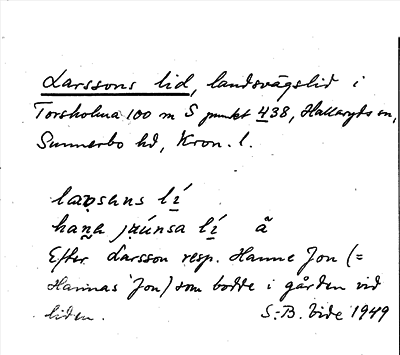 Larssons lid, landsvägslid i
Torsholma 100 m S punkt 438, Hallaryds sn,
Sunnerbo hd, Kron. l.
laʀsans lí
haṇa jɴúnsa lí ã
Efter Larsson resp. Hanne Jon (=
Hannas Jon) som bodde i gården vid
liden. S.-B. Vide 1949